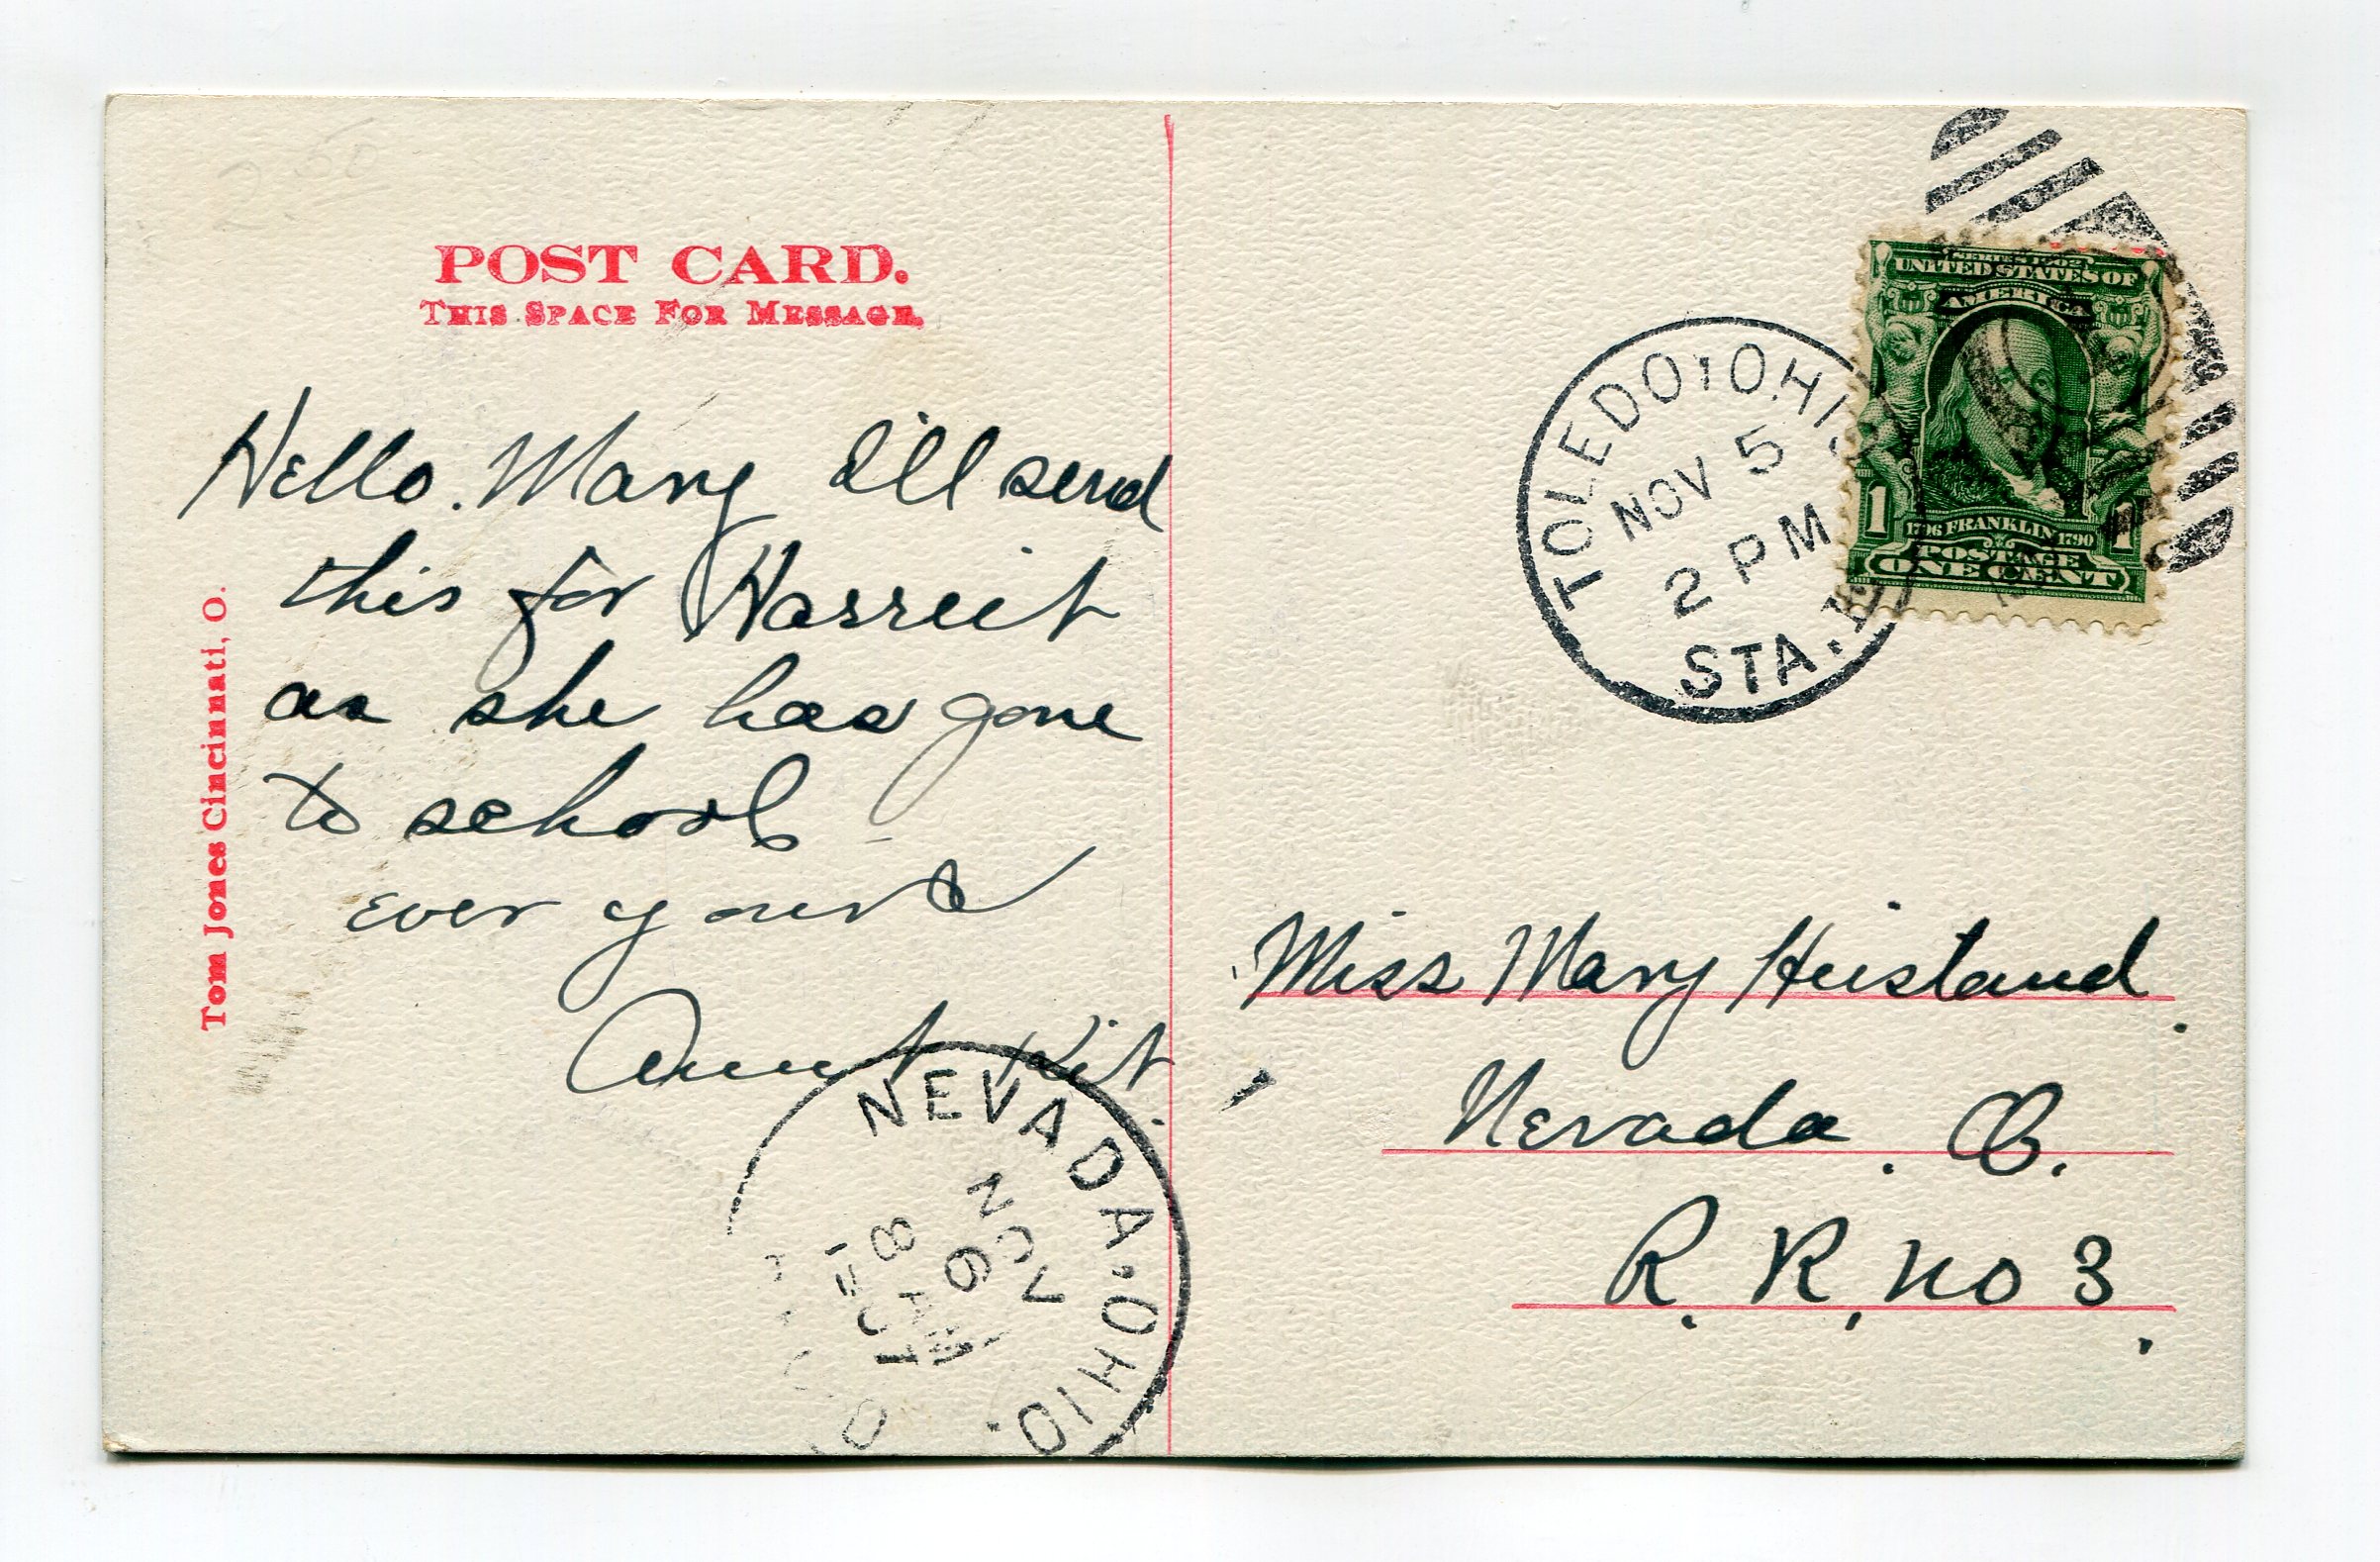 2 50
POST CARD.
THIS SPACE FOR MESSAGE.
Hello. Mary I'll send
this for Harreit
as she has gone
to school
ever yours
Aunt Kit.
Tom Jones Cincinnati, O.
NEVADA, OHIO.
NOV
6
8 AM
TOLEDO, OHIO
NOV 5
2 PM
STA.
SERIES 1902
UNITED STATES OF
AMERICA
1 1
1706 FRANKLIN 1790
POSTAGE
ONE CENT
Miss Mary
Nevada. O.
R. R. no 3.